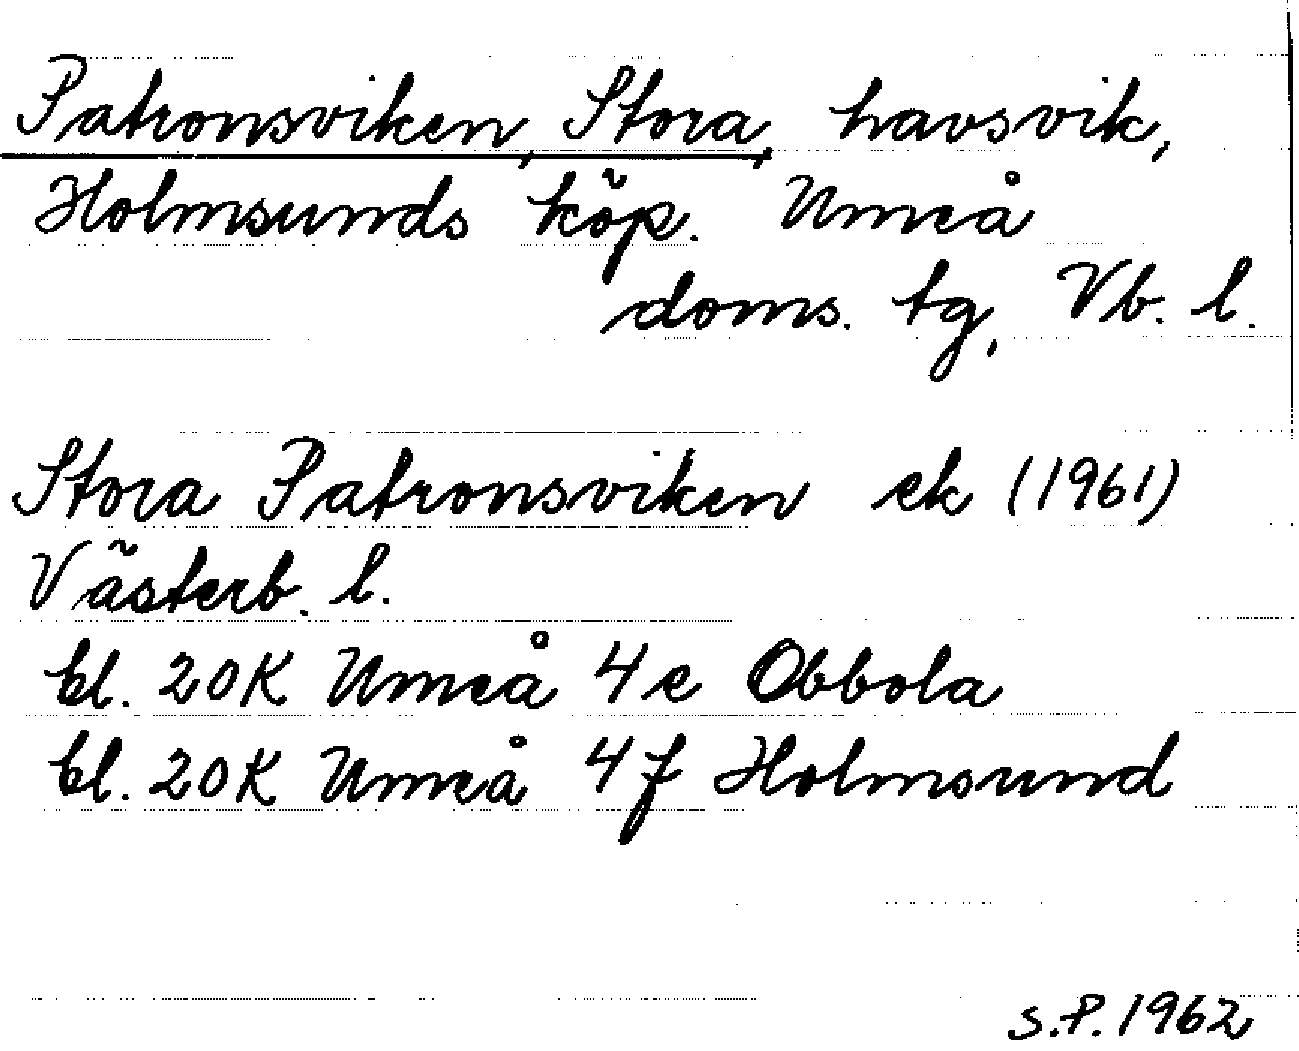 Patronsviken, Stora, havsvik,
Holmsunds köp. Umeå
doms. tg, Vb. l.
Stora Patronsviken ek (1961)
Västerb. l.
bl. 20K Umeå 4e Obbola
bl. 20K Umeå 4f Holmsund
S.P. 1962